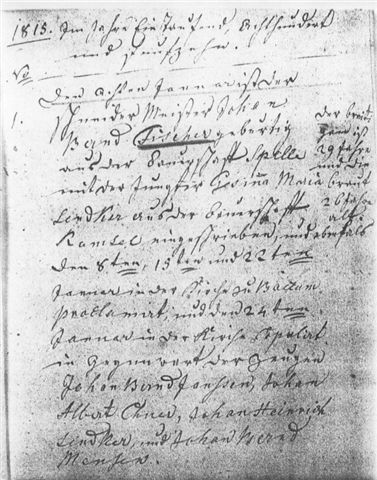 1815. Im Jahre Eintausend, Achthundert
und funfzehn.
No
Den achten Januar ist der
1. Schneider Meister Johan
Bernd Fischer gebürtig
aus der Baurschaft Spelle
mit der Jungfer Gesina Maria
Lindker aus der Bauerschaft
Ramsel, eingeschrieben, und
den 8ten, 15ten und 22ten
Januar in der Kirche zu
proclamirt, und den 24ten
Januar in der Kirche copulirt.
in Gegenwart der Zeugen
Johan Bernd Janssen, Johan
Albert, Johan Heinrich
Lindker, und Johan Bernd
Mensen.
der Breuti-
gam ist
29 Jahre
und die
braut
26 Jahr
alt.
ebenfals